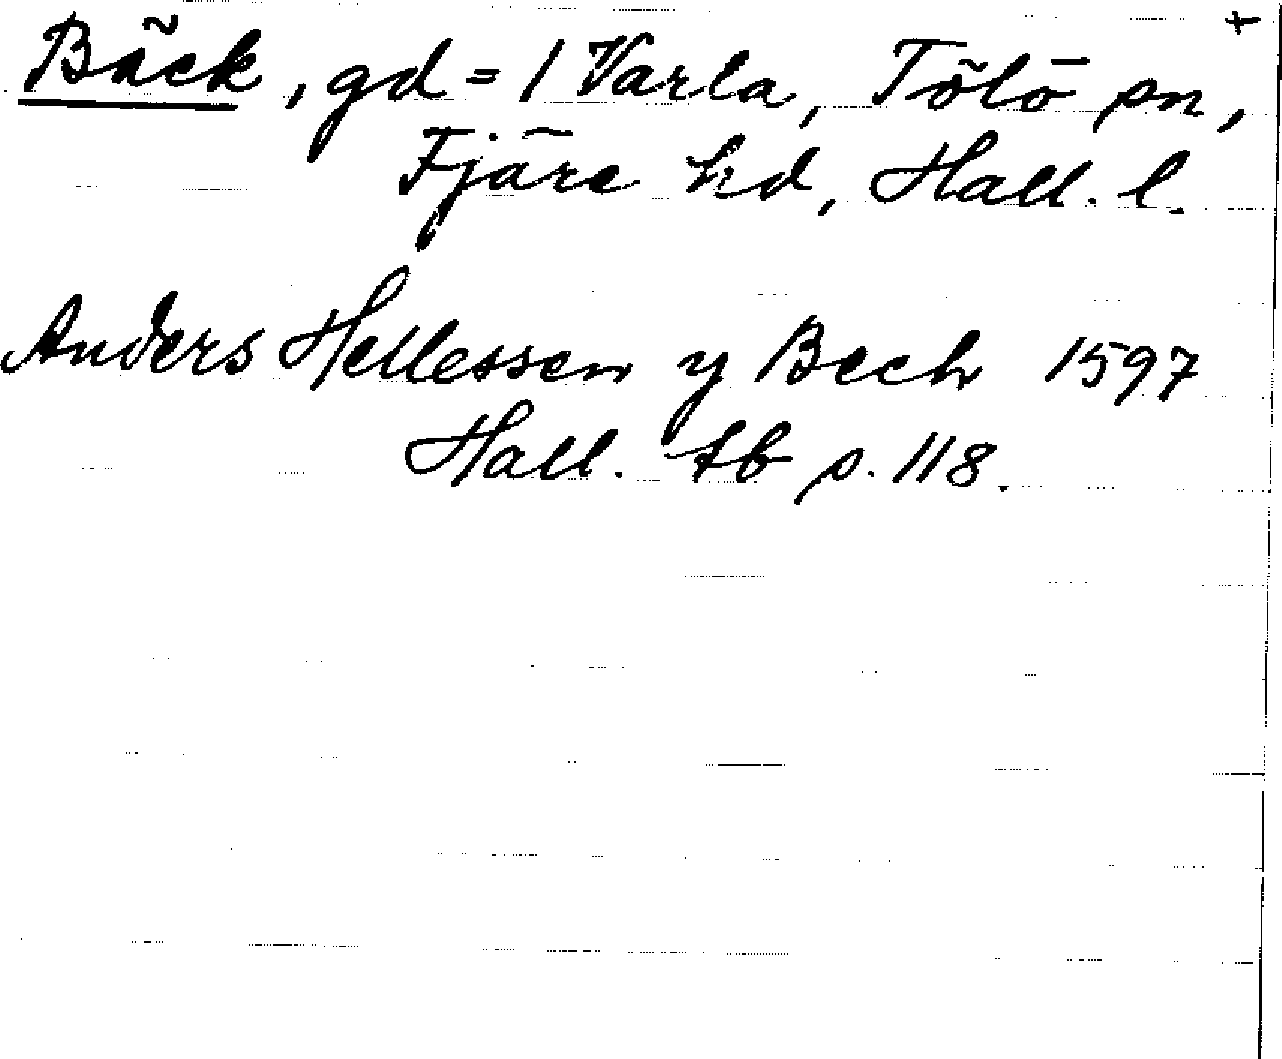 +
Bäck, gd = 1 Varla, Tölö sn,
Fjäre hd, Hall. l.
Anders Hellessen y Bech 1597
Hall. tb s. 118.